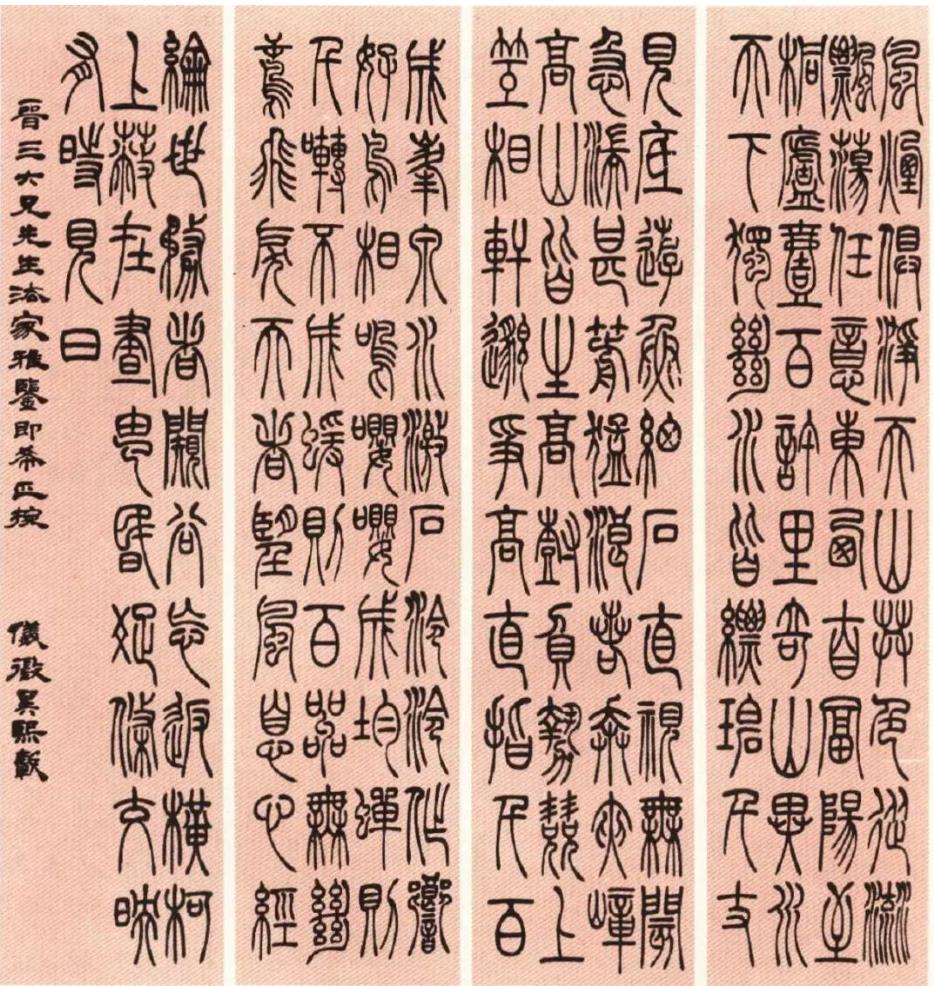 風煙俱淨天山共色從流
飄蕩任意東西自富陽至
桐廬壹百許里奇山異水
天下獨絕水皆縹碧千丈
見底游魚細石直視無閡
急湍甚箭猛浪若奔夾嶂
高山皆生高樹負勢競上
互相軒邈爭高直指千百
成峯泉水激石泠泠作響
好鳥相鳴嚶嚶成均蟬則
千囀不成蝯則百嘂無絕
鳶飛戾天者望風息心經
綸世務者闚谷忘返橫柯
上蔽在晝昏疏條交映
有時見日
晉三大兄先生法家雅鑒即希正捥 儀徵吳熙載